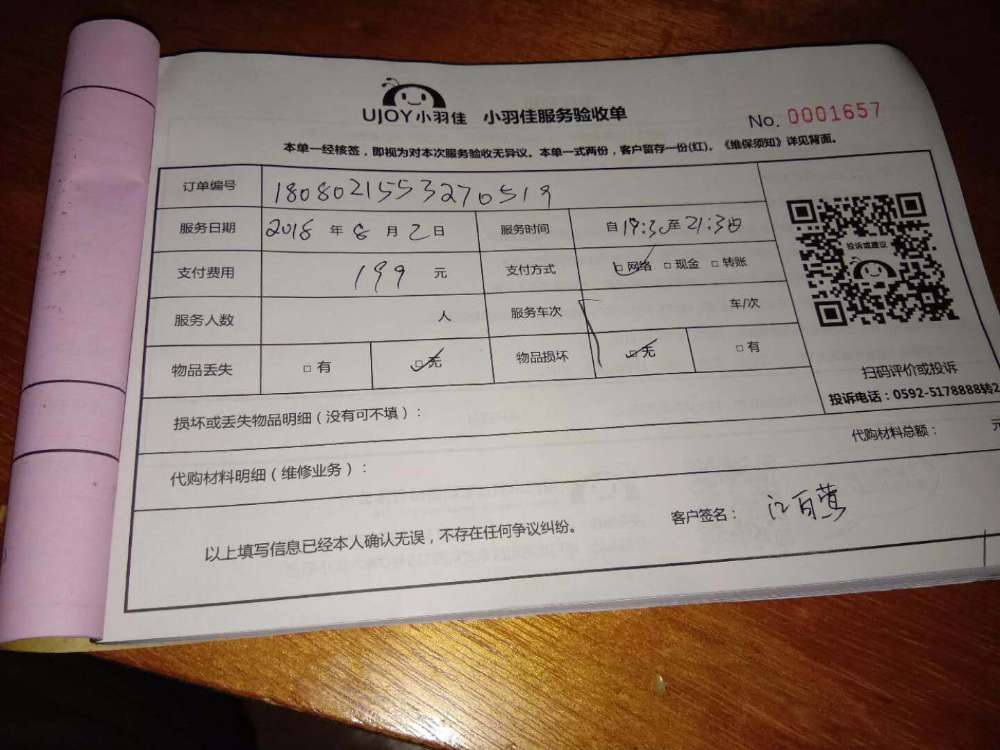 UJOY小羽佳 小羽佳服务验收单
No. 0001657
本单一经核签，即视为对本次服务验收无异议。本单一式两份，客户留存一份(红)。《维保须知》详见背面。
订单编号 1808021553270519
服务日期 2018 年 8 月 2 日 服务时间 自 19:30 至 21:30
支付费用 199 元 支付方式 □ 网络 □ 现金 □ 转账
服务人数 人 服务车次 车/次
物品丢失 □ 有 □ 无 物品损坏 □ 无 □ 有
投诉或建议
扫码评价或投诉
投诉电话：0592-5178888转2
损坏或丢失物品明细（没有可不填）：
代购材料明细（维修业务）： 代购材料总额： 元
以上填写信息已经本人确认无误，不存在任何争议纠纷。 客户签名： 江百莺